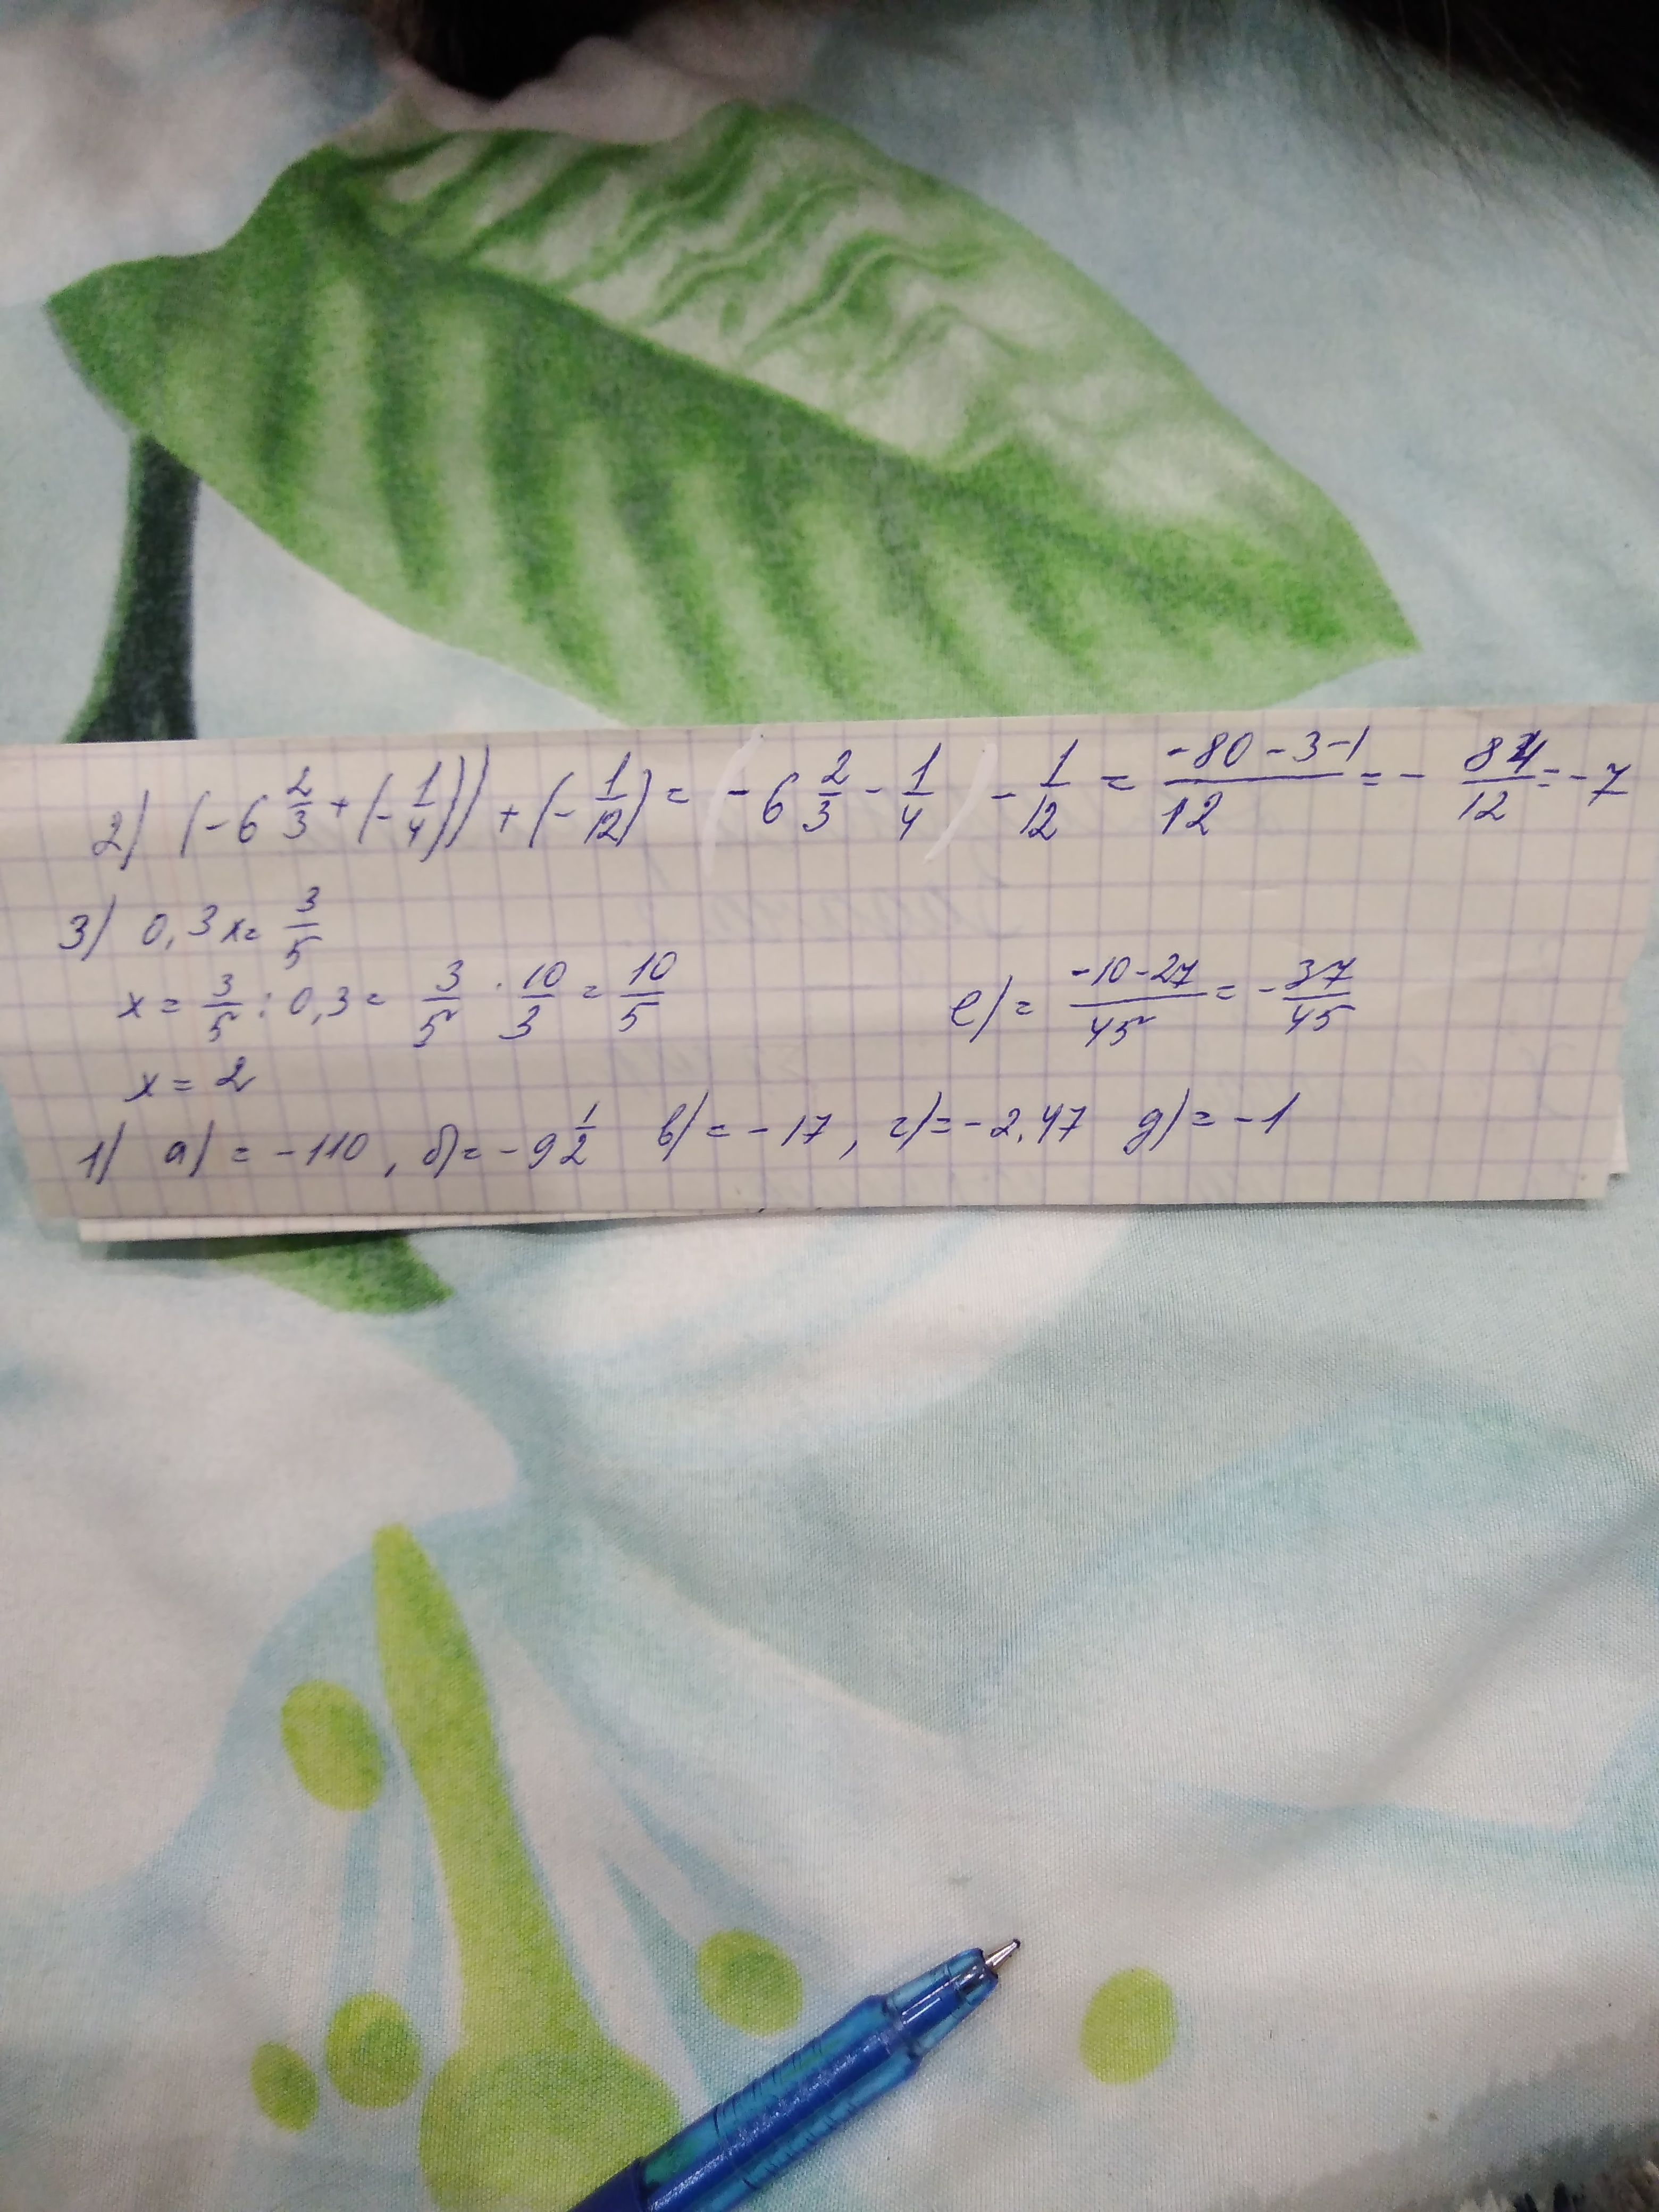 2) (-6 2/3 + (-1/4)) + (-1/12) = -6 2/3 - 1/4 - 1/12 = (-80-3-1)/12 = - 84/12 = -7
3) 0,3x = 3/5
x = 3/5 : 0,3 = 3/5 · 10/3 = 10/5
е) = (-10-27)/45 = - 37/45
x = 2
1) а) = -110, б) = -9 1/2 в) = -17, г) = -2,47 д) = -1